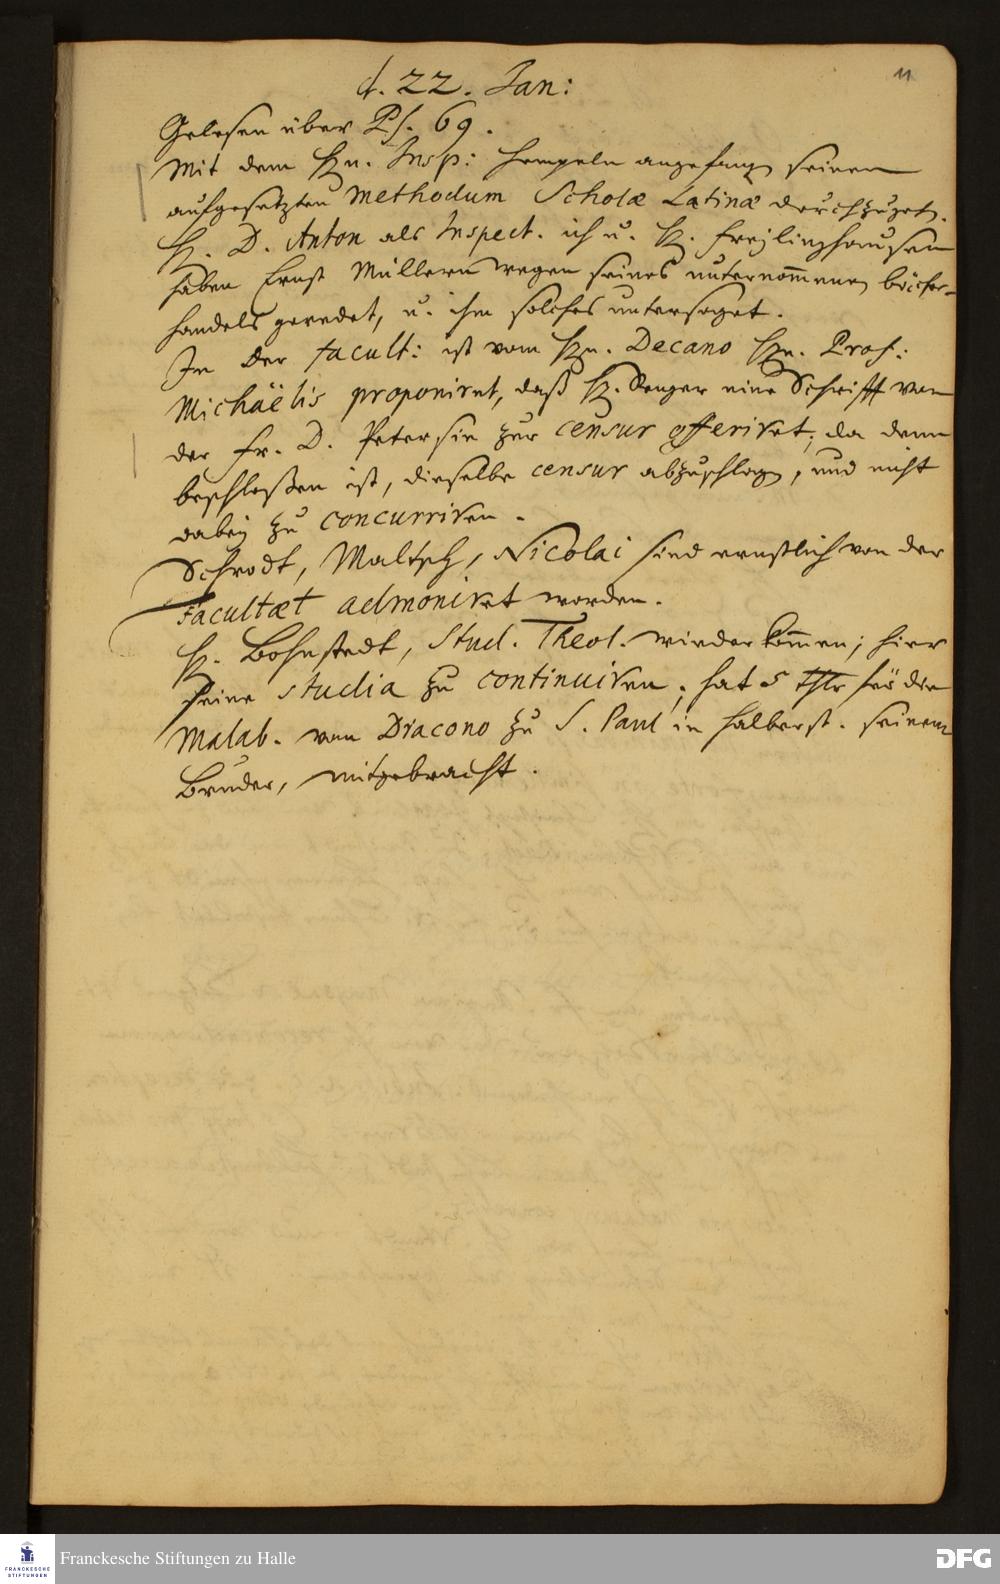 11
d. 22. Jan:
Gelesen über Ps. 69.
Mit dem Hn. Insp: Hempeln angefangen seinen
aufgesetzten Methodum Scholæ Latinæ durchzugehen.
H. D. Anton als Inspect. ich u. H. Freylinghausen
haben Ernst Müllern wegen seines unternommenen bücher-
handels geredet, u. ihm solches untersaget.
In der Facult: ist vom Hn. Decano Hn. Prof:
Michaëlis proponiret, daß H. Renger eine Schrifft von
der Fr. D. Petersin zur censur offeriret; da denn
beschloßen ist, dieselbe censur abzuschlagen, und nicht
dabey zu concurriren.
Schrodt, Maltsch, Nicolai sind ernstlich von der
Facultæt admoniret worden.
H. Bohnstedt, Stud. Theol. wieder kommen; hier
seine studia zu continuiren; hat 5 Thlr für die
Malab. vom Diacono zu S. Paul in Halberst. seinem
Bruder, mitgebracht.
FRANCKESCHE
STIFTUNGEN
Franckesche Stiftungen zu Halle
DFG